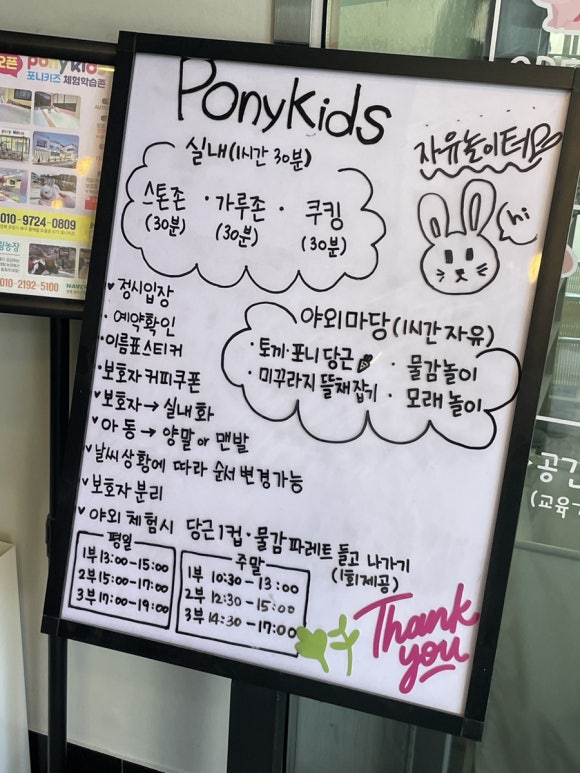 PonyKids
자유놀이터
hi
실내(1시간 30분)
스톤존 · 가루존 · 쿠킹
(30분) (30분) (30분)
야외마당(1시간 자유)
· 토끼·포니 당근 · 물감놀이
· 미꾸라지 뜰채잡기 · 모래놀이
정시입장
· 예약확인
· 이름표스티커
· 보호자 커피쿠폰
보호자→실내화
아동→양말 or 맨발
날씨 상황에 따라 순서 변경가능
보호자 분리
야외 체험시 당근1컵·물감파레트 들고 나가기
(1회제공)
평일
1부 13:00-15:00
2부 15:00-17:00
3부 17:00-19:00
주말
1부 10:30-13:00
2부 12:30-15:00
3부 14:30-17:00
Thank you
오픈
포니키즈 체험학습존
010-9724-0809
010-2192-5100
공간
(교육